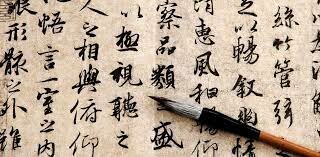 絲竹管弦
足以暢敘幽情
惠風和暢仰
察品類盛
以極視聽之
人之相與俯仰
悟言一室之內
浪形骸之外雖